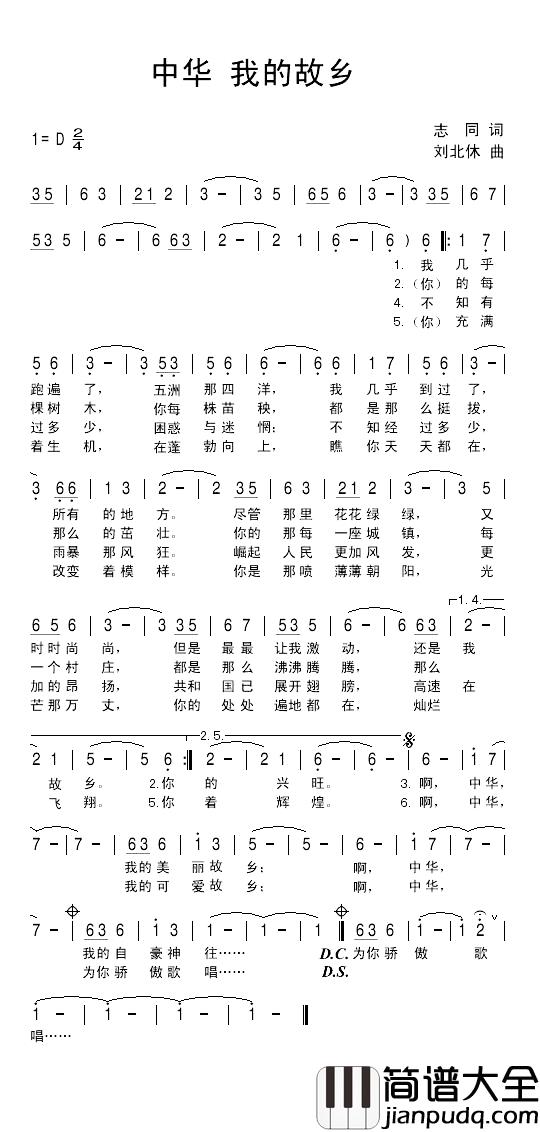 中华 我的故乡
1= D 2/4
志 同 词
刘北休 曲
35 | 6 3 | 21 2 | 3 - | 3 5 | 65 6 | 3 - | 3 35 | 6 7 |
53 5 | 6 - | 6 63 | 2 - | 2 1 | 6 - | 6 ) 6 ‖: 1 7 |
1. 我 几乎
2.（你）的每
4. 不 知有
5.（你）充满
5 6 | 3 - | 3 53 | 5 6 | 6 - | 6 1 | 1 7 | 5 6 | 3 - |
跑遍 了， 五洲 那四 洋， 我 几乎 到过 了，
棵树 木， 你每 株苗 秧， 都 是那 么挺 拔，
过多 少， 困惑 与迷 惘； 不 知经 过多 少，
着生 机， 在蓬 勃向 上， 瞧 你天 天都 在，
3 66 | 1 3 | 2 - | 2 35 | 6 3 | 21 2 | 3 - | 3 5 |
所有 的地 方。 尽管 那里 花花绿 绿， 又
那么 的茁 壮。 你的 那每 一座城 镇， 每
雨暴 那风 狂。 崛起 人民 更加风 发， 更
改变 着模 样。 你是 那喷 薄薄朝 阳， 光
65 6 | 3 - | 3 35 | 6 7 | 53 5 | 6 - | 6 63 | 2 - |
1. 4.
时时尚 尚， 但是 最最 让我激 动， 还是 我
一个村 庄， 都是 那么 沸沸腾 腾， 那么
加的昂 扬， 共和 国已 展开翅 膀， 高速 在
芒那万 丈， 你的 处处 遍地都 在， 灿烂
2. 5.
2 1 | 5 - | 5 6 :‖ 2 - | 2 1 | 6 - | 6 - | 6 - | 1 7 |
故 乡。 2.你 的 兴 旺。 3. 啊， 中华，
飞 翔。 5.你 着 辉 煌。 6. 啊， 中华，
7 - | 7 - | 63 6 | 1 3 | 5 - | 5 - | 6 - | 1 7 | 7 - |
我的美 丽故 乡； 啊， 中华，
我的可 爱故 乡； 啊， 中华，
7 - | 63 6 | 1 3 | 1 - | 1 - ‖ 63 6 | 1 - | 1 2 |
我的自 豪神 往…… D.C. 为你骄 傲 歌
为你骄 傲歌 唱…… D.S.
1 - | 1 - | 1 - | 1 - ‖
唱……
简谱大全
jianpudq.com